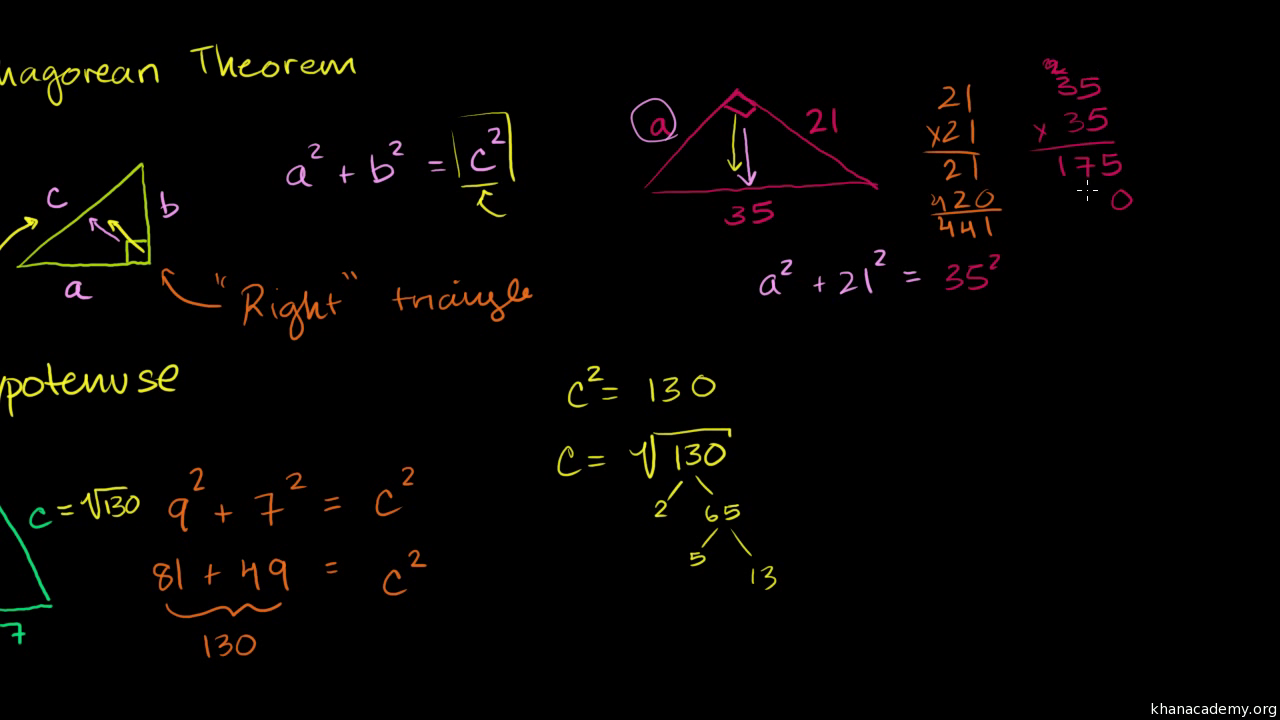 hagorean Theorem
a² + b² = c²
c
b
a
"Right" triangle
potenuse
c = √130
7
9² + 7² = c²
81 + 49 = c²
130
a
21
35
a² + 21² = 35²
21
x21
21
420
441
2
35
x 35
175
0
c² = 130
c = √130
2 65
5 13
khanacademy.org